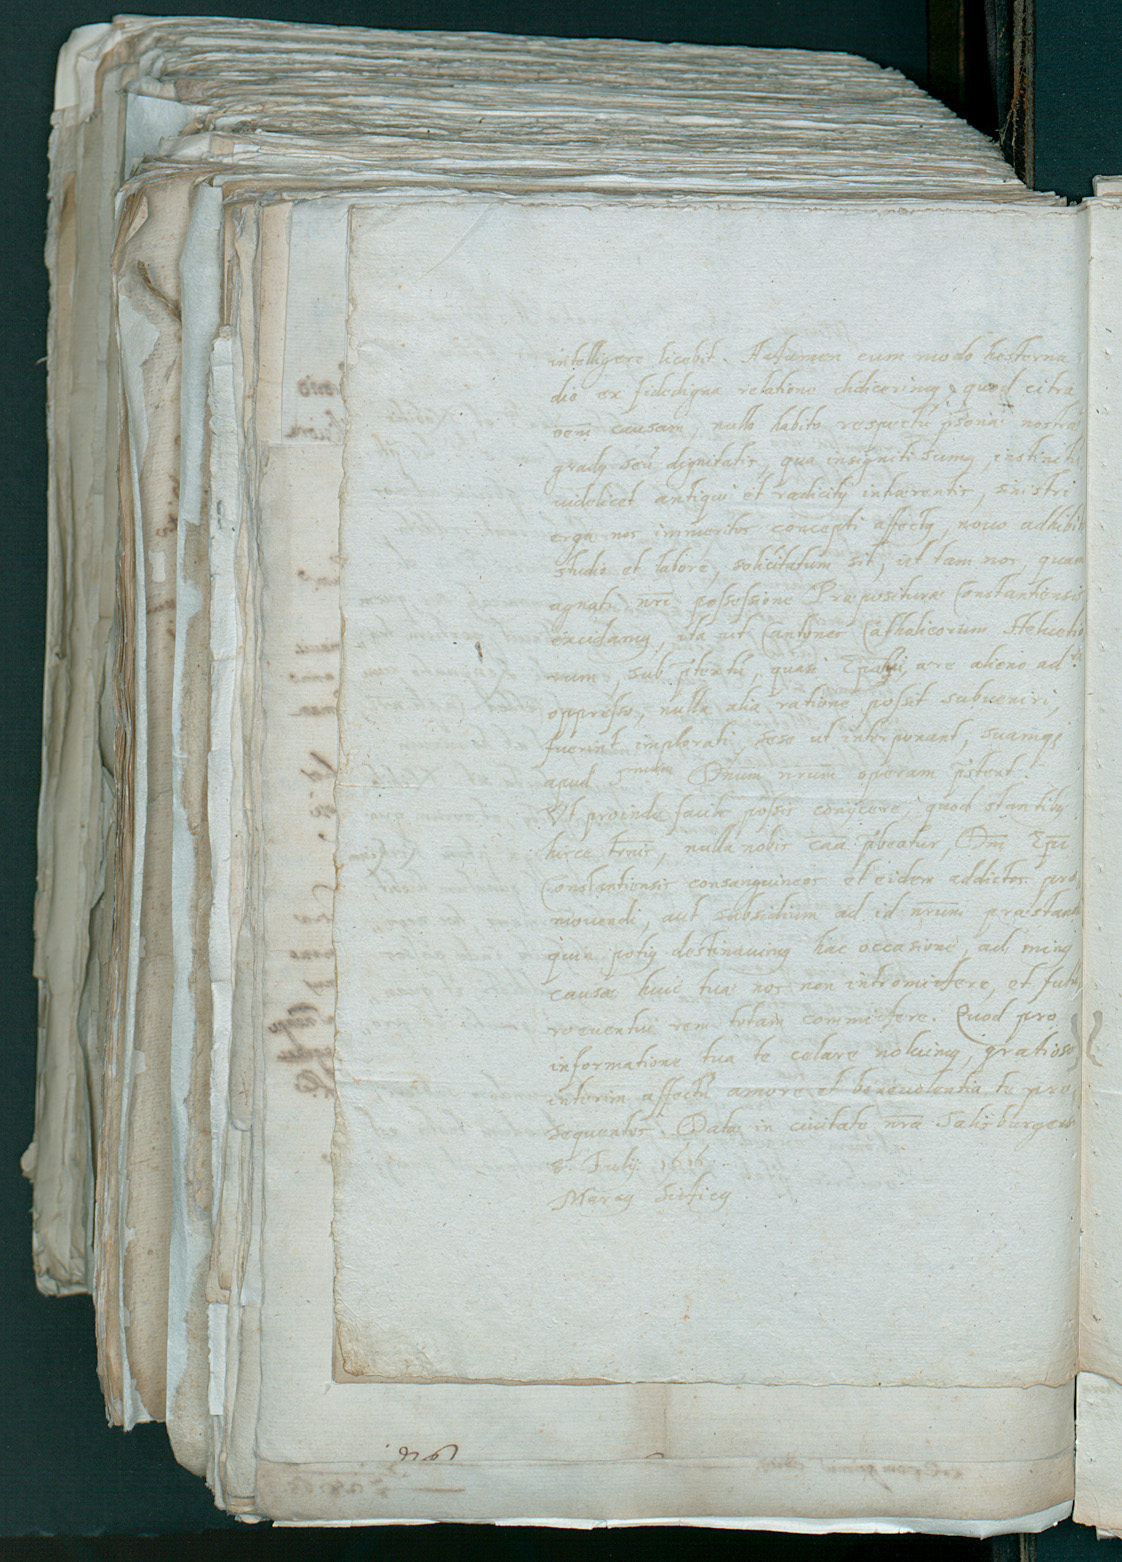 intelligere licebit. Attamen cum modo hesterna
die ex fidedigna relatione didicerimus, quod citra
oem causam, nullo habito respectu psonae nostrae
gradus seu dignitatis, qua insigniti sumus, instinctu
videlicet antiqui et radicitus inhaerentis, sinistri
erga nos immeritos concepti affectus, novo adhibito
studio et labore, solicitatum sit, ut tam nos, quam
agnati nri possessione Praepositurae Constantiensis
excidamus, ita ut Cantones Catholicorum Helvetio
rum, sub ptextu, quasi Epatui, aere alieno ad
oppresso, nulla alia ratione possit subveniri,
fuerint implorati, sese ut interponant, suamq;
apud Smum Dnum nrum operam pstent.
Ut proinde facile possis conijcere, quod stantibus
hisce tmis, nulla nobis caa pbeatur, Dni Epi
Constantiensis consanguineos et eidem addictos pro
movendi, aut subsidium ad id nrum praestandi
quin potius destinavimus hac occasione, ad minus
causae huic tuae nos non intromittere, et futu
ro eventui rem totam committere. Quod pro
informatione tua te celare noluimus, gratioso
interim affectu amore et benevolentia te pro
sequentes. Datae in civitate nra Salisburgensi
8. July. 1616.
Marcus Sitticus